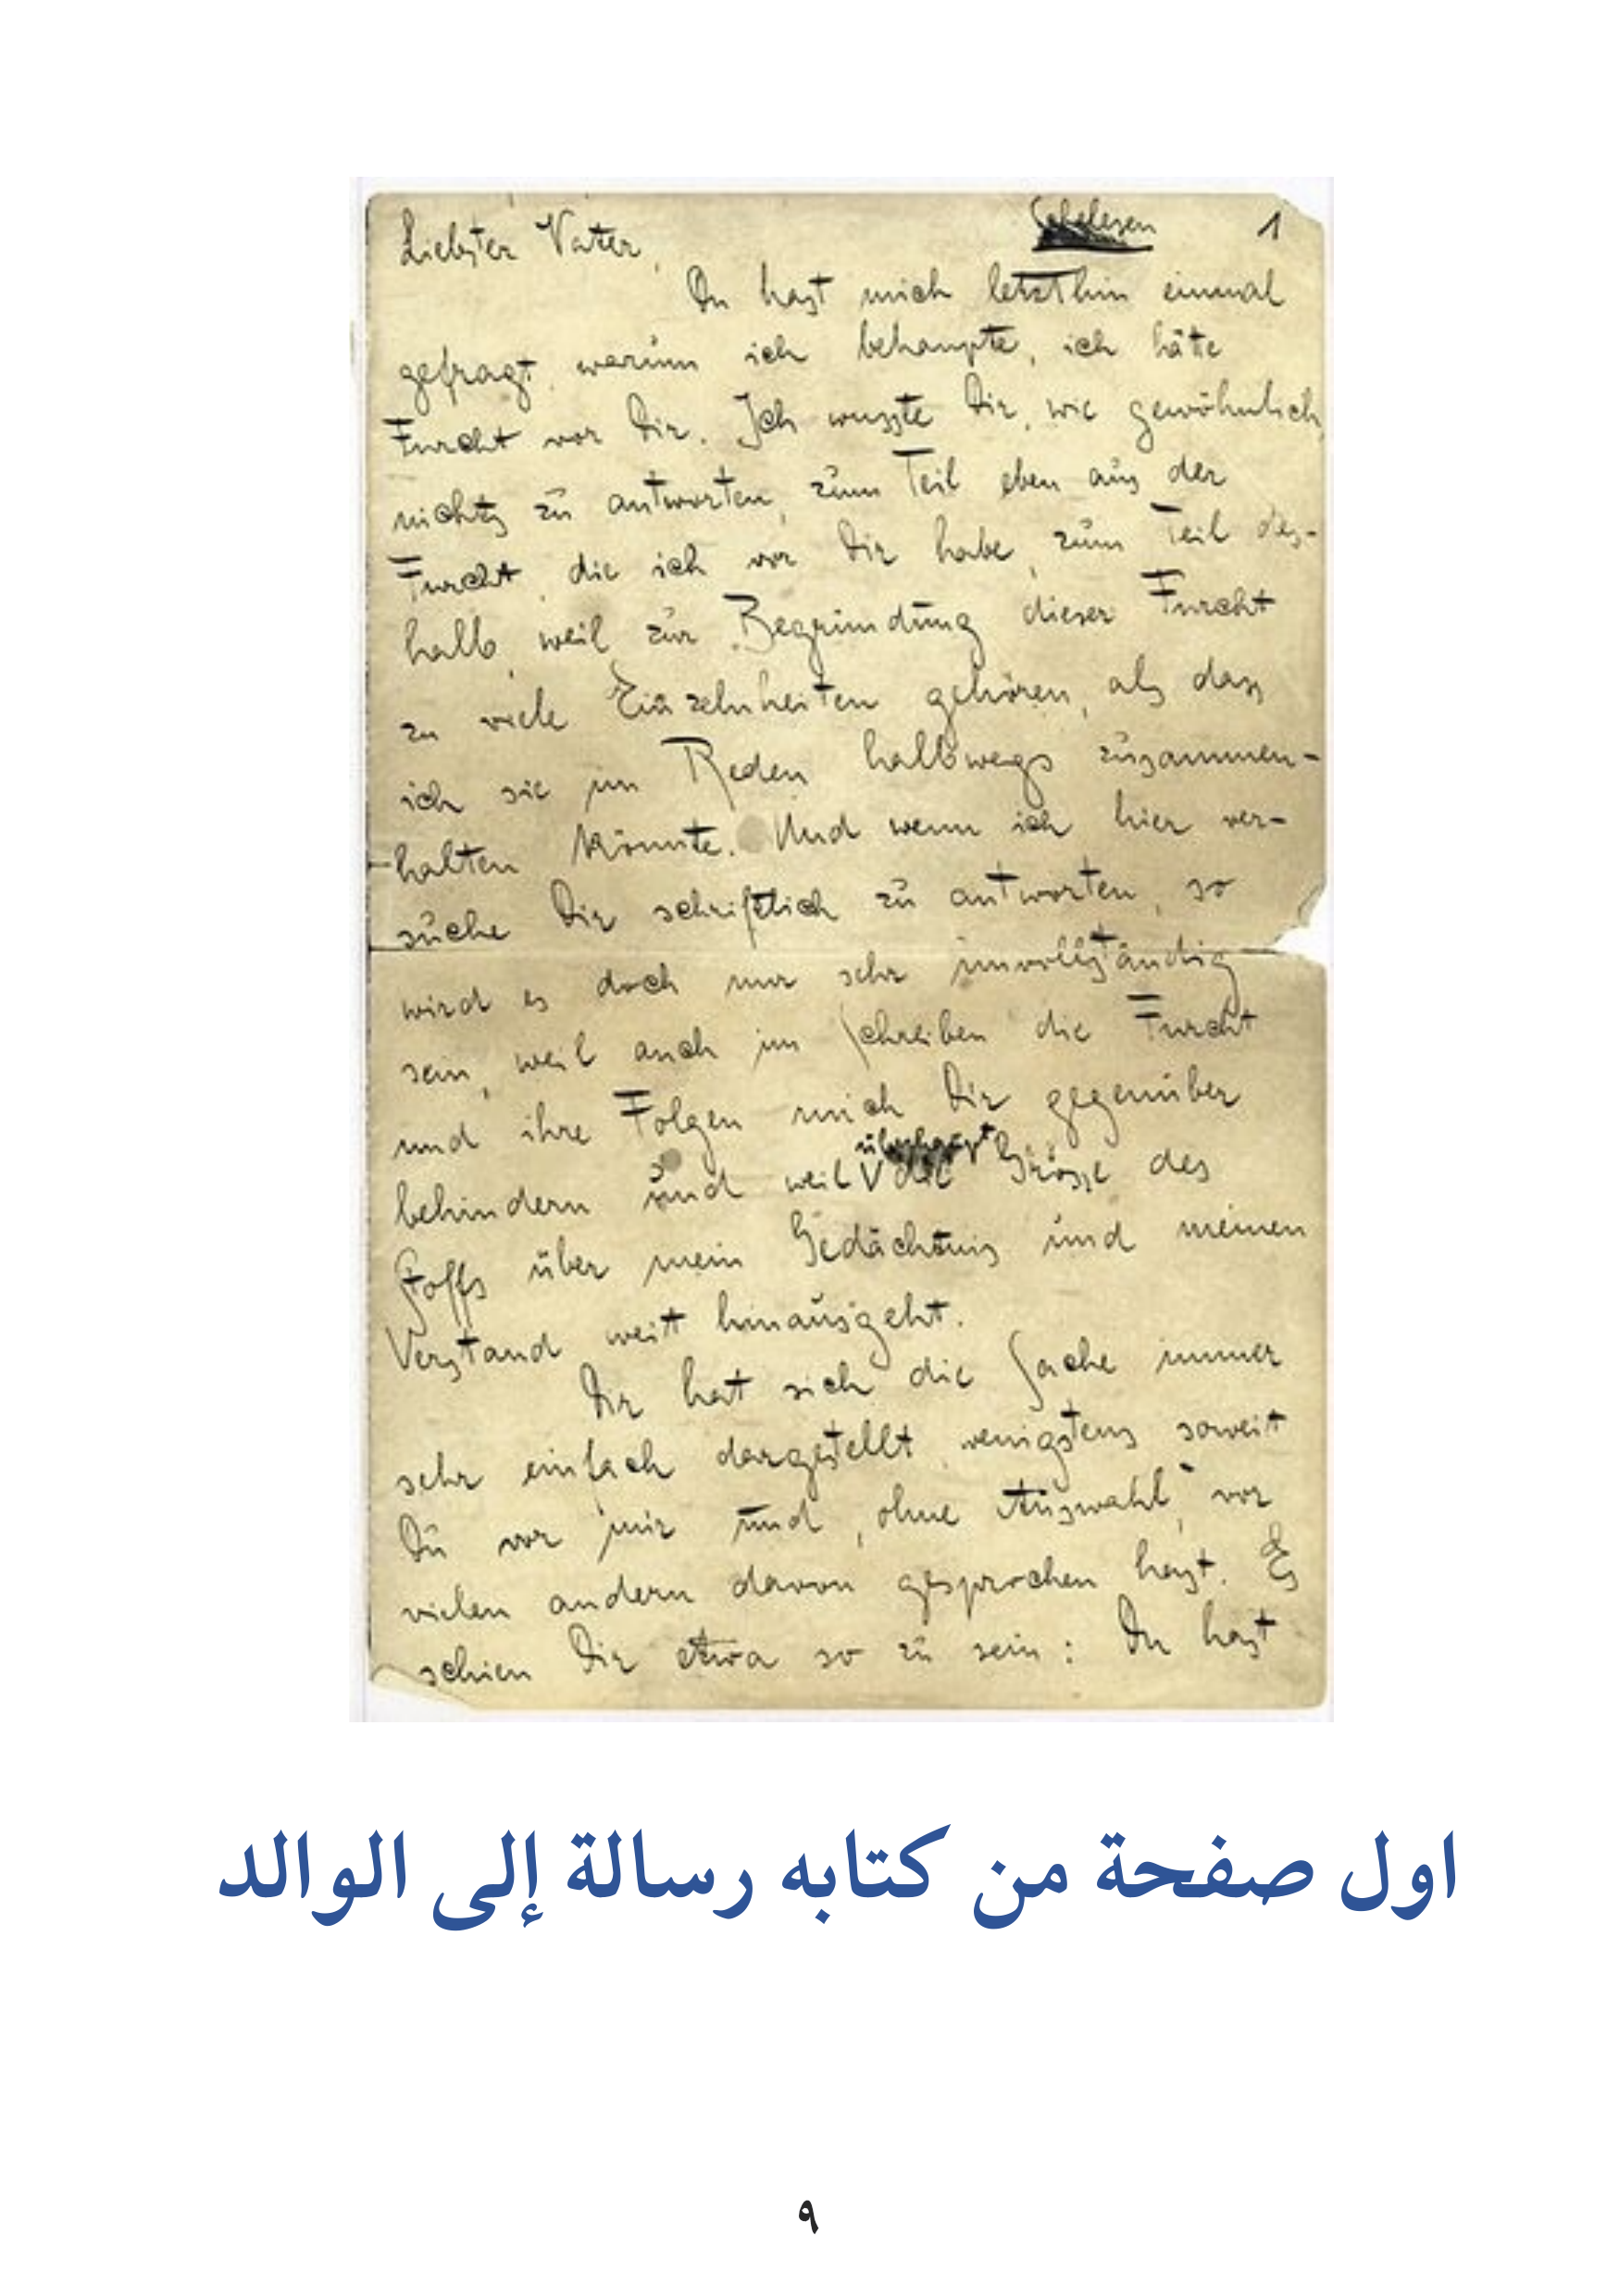 Liebster Vater, Schelesen 1
Du hast mich letzthin einmal
gefragt, warum ich behaupte, ich hätte
Furcht vor Dir. Ich wusste Dir, wie gewöhnlich,
nichts zu antworten, zum Teil eben aus der
Furcht, die ich vor Dir habe, zum Teil des-
halb, weil zur Begründung dieser Furcht
zu viele Einzelnheiten gehören, als dass
ich sie im Reden halbwegs zusammen-
halten könnte. Und wenn ich hier ver-
suche Dir schriftlich zu antworten, so
wird es doch nur sehr unvollständig
sein, weil auch im Schreiben die Furcht
und ihre Folgen mich Dir gegenüber
überhaupt
behindern und weil die Grösse des
Stoffs über mein Gedächtnis und meinen
Verstand weit hinausgeht.
Dir hat sich die Sache immer
sehr einfach dargestellt, wenigstens soweit
Du vor mir und, ohne Auswahl, vor
vielen andern davon gesprochen hast. Es
schien Dir etwa so zu sein: Du hast
اول صفحة من كتابه رسالة إلى الوالد
٩